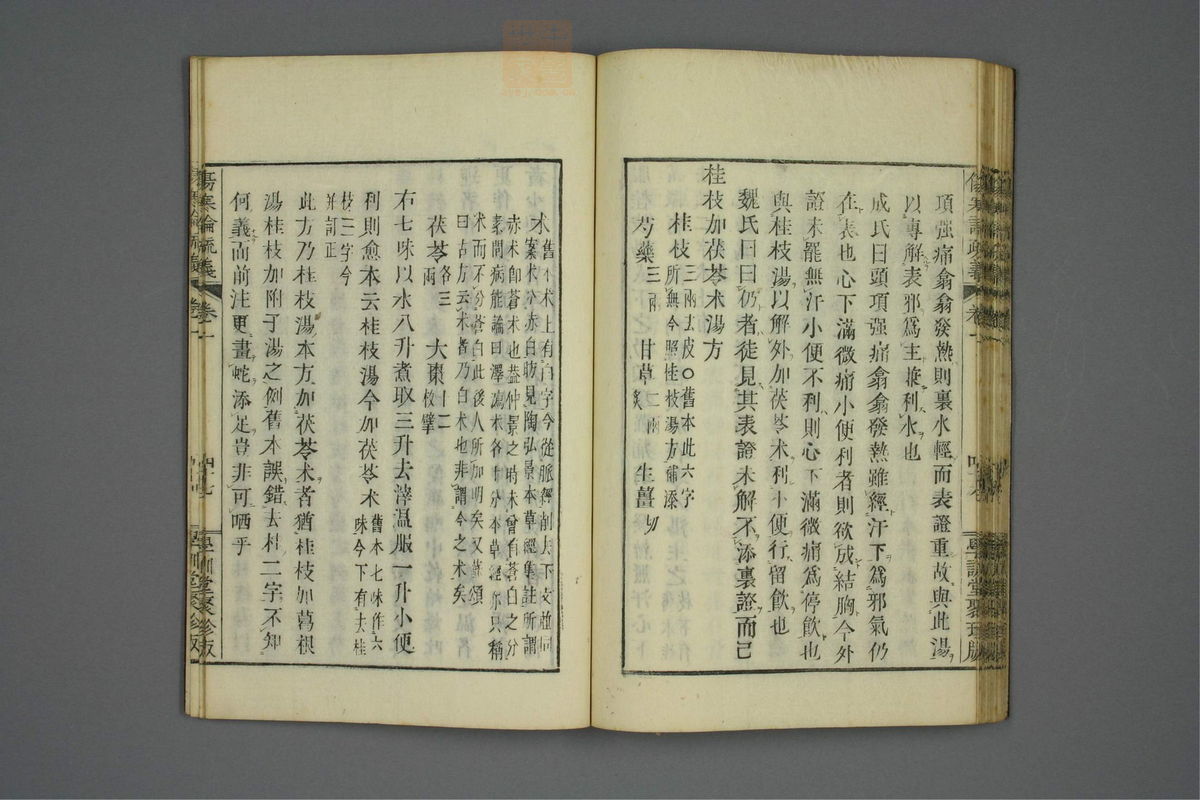 項強痛翕翕發熱則裏水輕而表證重故與此湯
以專解表邪爲主兼利水也
成氏曰頭項强痛翕翕發熱雖經汗下爲邪氣仍
在表也心下滿微痛小便利者則欲成結胸今外
證未罷無汗小便不利則心下滿微痛爲停飮也
與桂枝湯以解外加茯苓朮利小便行留飮也
魏氏曰曰仍者徒見其表證未解不添裏證而已
桂枝加茯苓朮湯方
桂枝三兩去皮〇舊本此六字
所無今照桂枝湯方補添
芍藥三兩 甘草二兩炙 生薑切
朮舊本朮上有白字今從脈經削去下文並同
案朮分赤白昉見陶弘景本草經集註所謂
赤朮卽蒼朮也蓋仲景之時未曾有蒼白之分
素問病能論曰澤瀉朮各十分本草經亦只稱
朮而不分蒼白此後人所加明矣又蘇頌
曰古方云朮者乃白朮也非謂今之朮矣
茯苓各三兩 大棗十二枚擘
右七味以水八升煮取三升去滓温服一升小便
利則愈本云桂枝湯今加茯苓朮舊本七味作六
味今下有去桂
枝三字今
並訂正
此方乃桂枝湯本方加茯苓朮者猶桂枝加葛根
湯桂枝加附子湯之例舊本誤錯去桂二字不知
何義而前注更畫蛇添足豈非可哂乎
傷寒論疏義 卷二 四十七 學訓堂聚珍版